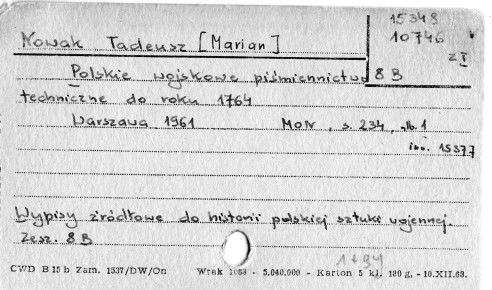 15348
10746
z I
8 B
Nowak Tadeusz [Marian]
Polskie wojskowe piśmiennictwo
techniczne do roku 1764
Warszawa 1961 MON, s. 234, nlb. 1
inw. 15377
Wypisy źródłowe do historii polskiej sztuki wojennej.
Zesz. 8 B
CWD B 15 b Zam. 1537/DW/On Wrak 1063 - 5.040.000 - Karton 5 kl. 180 g. - 10.XII.63.